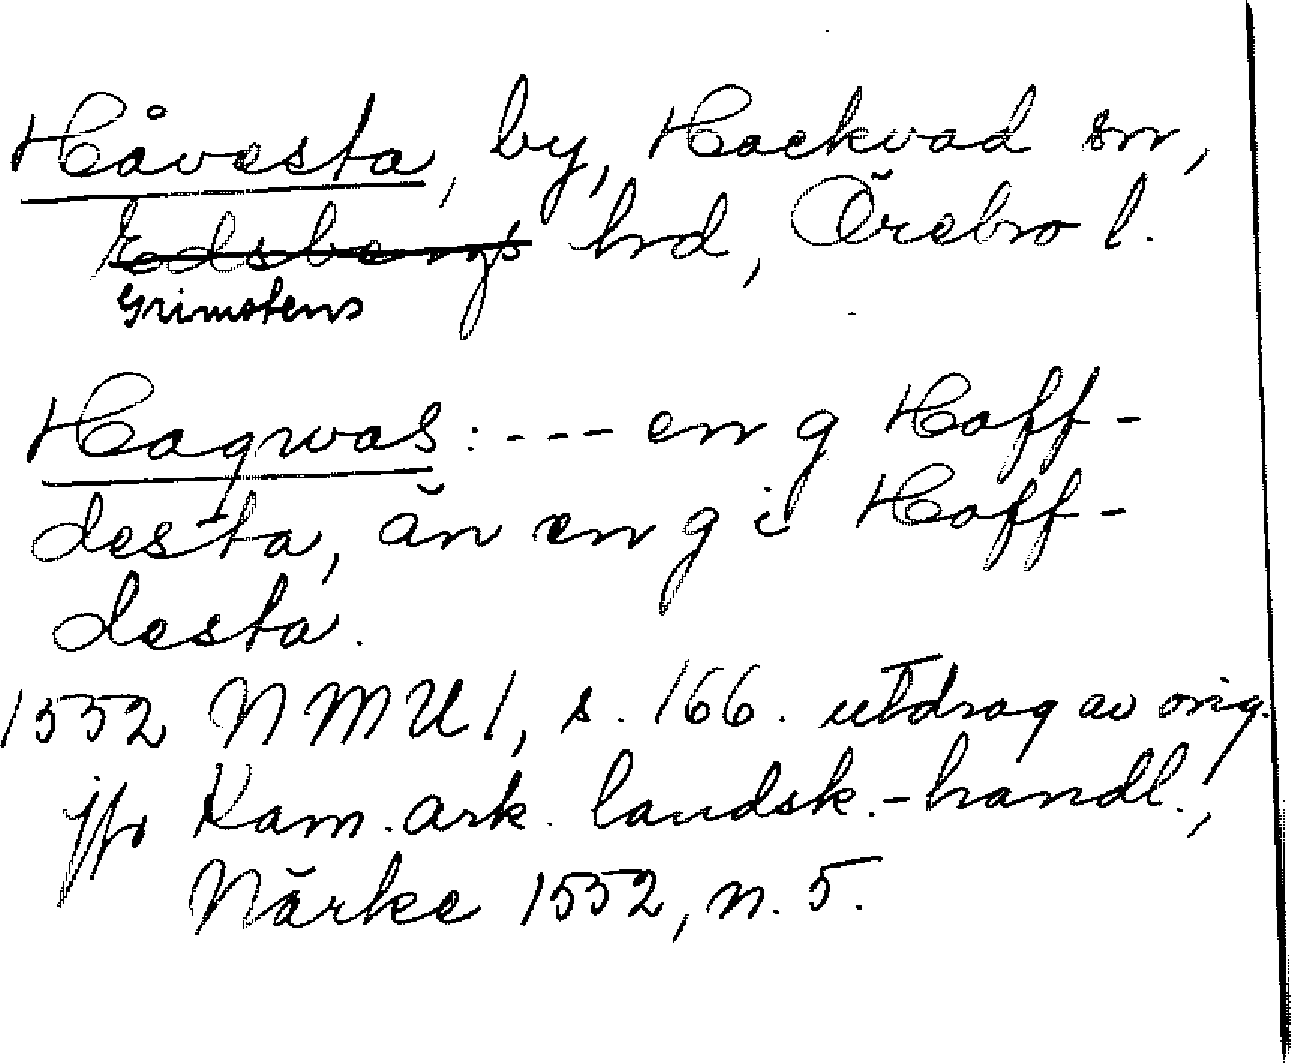 Håvesta, by, Hackvad sn,
Edsbergs hrd, Örebro l.
Grimstens
Hagwas: --- en g Haff-
desta, än en g i Haff-
desta.
1552 NMU 1, s. 166. utdrag av orig.
jfr Kam. ark. landsk.-handl.,
Närke 1552, n. 5.